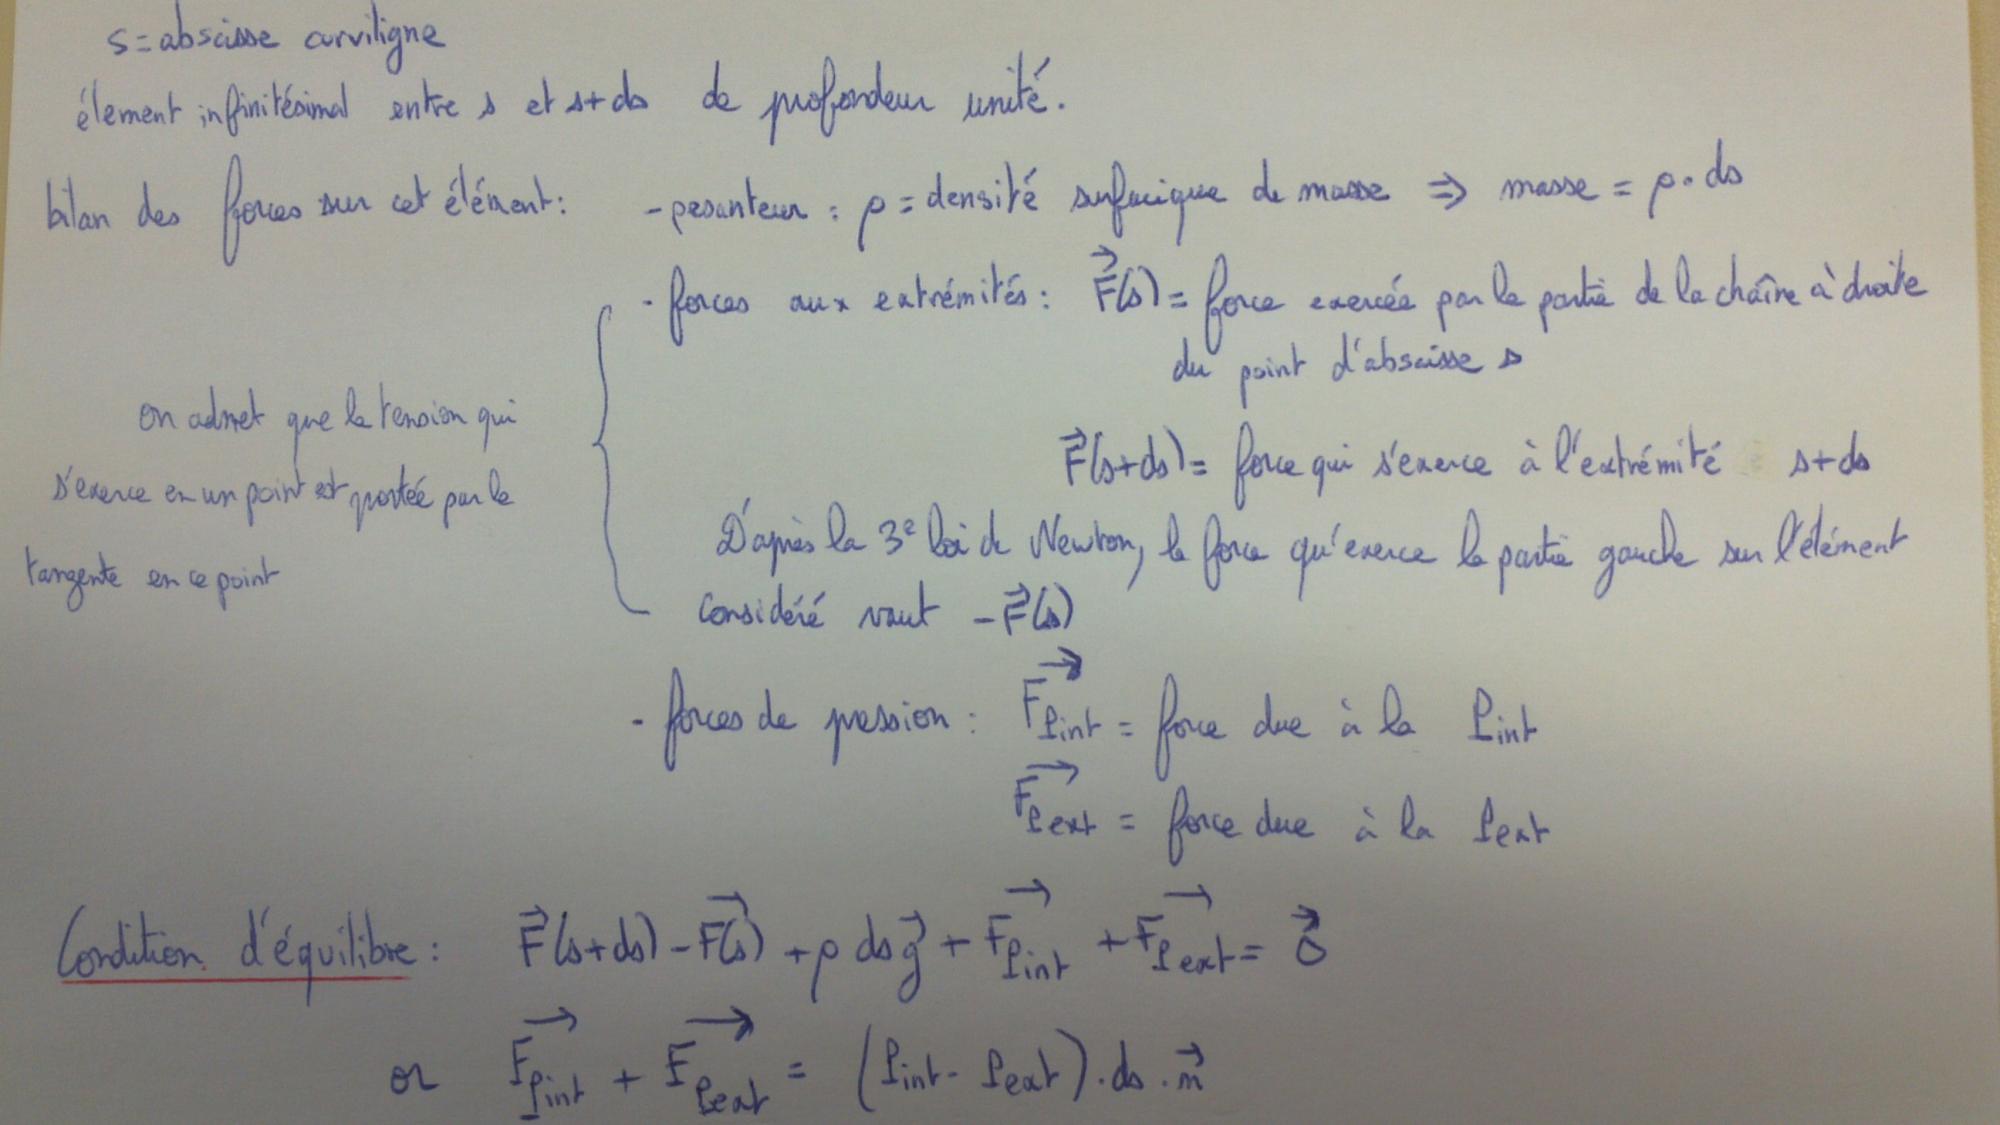 s = abscisse curviligne
élement infinitésimal entre s et s+ds de profondeur unité.
bilan des forces sur cet élément : - pesanteur : ρ = densité surfacique de masse ⇒ masse = ρ . ds
- forces aux extrémités : F⃗(s) = force exercée par la partie de la chaîne à droite
du point d'abscisse s
on admet que la tension qui
s'exerce en un point est portée par la
tangente en ce point
F⃗(s+ds) = force qui s'exerce à l'extrémité s+ds
D'après la 3e loi de Newton, la force qu'exerce la partie gauche sur l'élément
considéré vaut - F⃗(s)
- forces de pression : F⃗Pint = force due à la Pint
F⃗Pext = force due à la Pext
Condition d'équilibre : F⃗(s+ds) - F⃗(s) + ρ ds g⃗ + F⃗Pint + F⃗Pext = 0⃗
or F⃗Pint + F⃗Pext = (Pint - Pext) . ds . n⃗